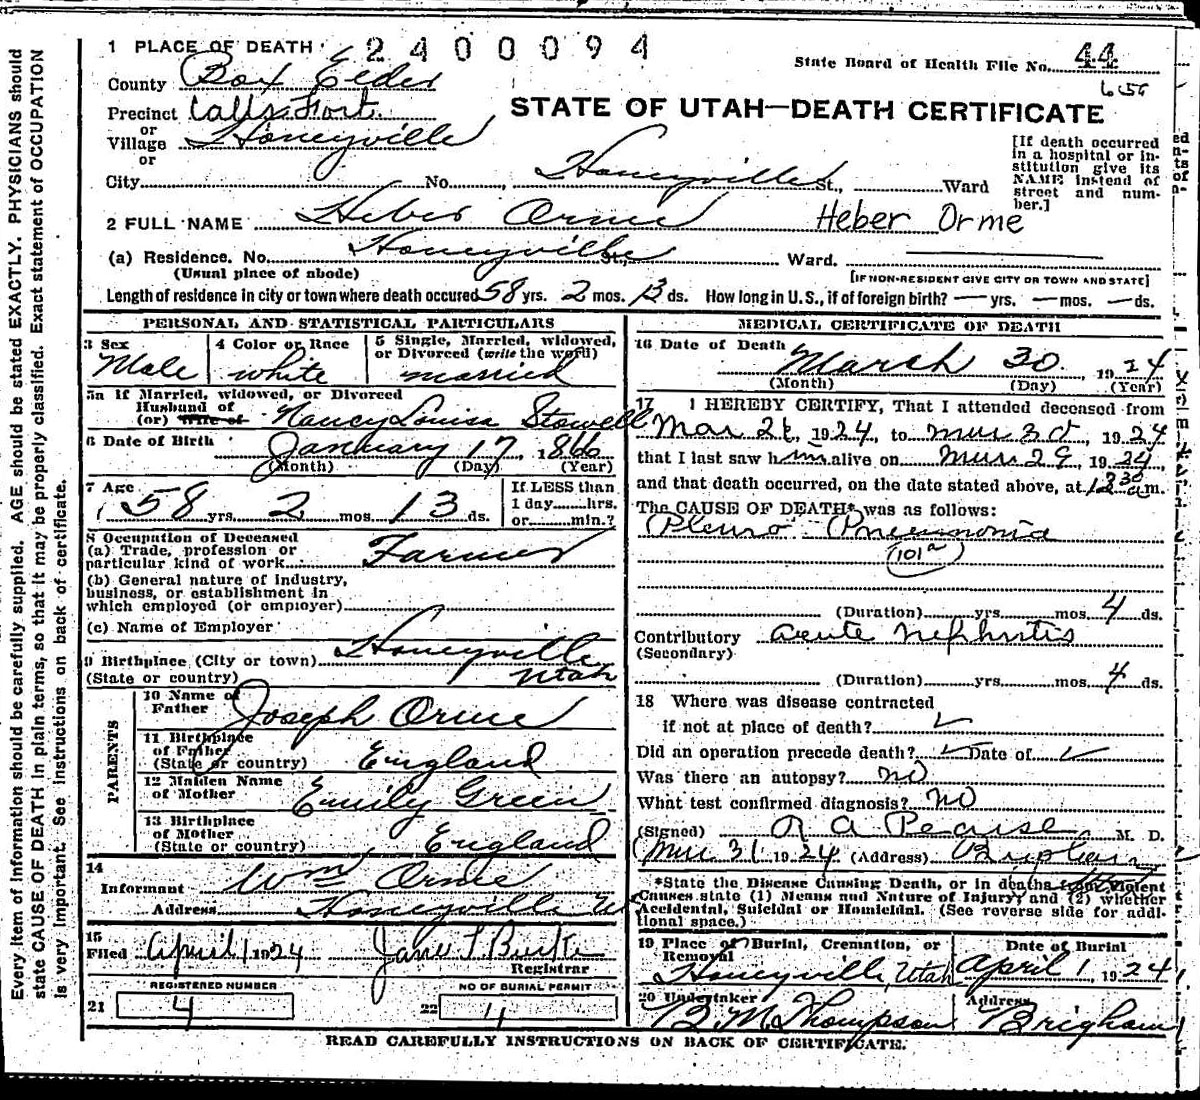 1 PLACE OF DEATH 2400094
State Board of Health File No. 44
County Box Elder
Precinct Calls Fort
or
Village Honeyville
or
STATE OF UTAH—DEATH CERTIFICATE
City No. Honeyville St., Ward
[If death occurred
in a hospital or in-
stitution give its
NAME instead of
street and num-
ber.]
2 FULL NAME Heber Orme Heber Orme
(a) Residence. No. Honeyville St., Ward.
(Usual place of abode) [IF NON-RESIDENT GIVE CITY OR TOWN AND STATE]
Length of residence in city or town where death occured 58 yrs. 2 mos. 13 ds. How long in U.S., if of foreign birth? — yrs. — mos. — ds.
PERSONAL AND STATISTICAL PARTICULARS
3 Sex
Male
4 Color or Race
white
5 Single, Married, widowed,
or Divorced (write the word)
married
5a If Married, widowed, or Divorced
Husband of
(or) Wife of Nancy Louisa Stowell
6 Date of Birth January 17, 1866
(Month) (Day) (Year)
7 Age 58 yrs. 2 mos. 13 ds.
If LESS than
1 day hrs.
or min.?
8 Occupation of Deceased
(a) Trade, profession or
particular kind of work Farmer
(b) General nature of industry,
business, or establishment in
which employed (or employer)
(c) Name of Employer
9 Birthplace (City or town) Honeyville
(State or country) Utah
PARENTS
10 Name of
Father Joseph Orme
11 Birthplace
of Father
(State or country) England
12 Maiden Name
of Mother Emily Green
13 Birthplace
of Mother
(State or country) England
14
Informant Wm Orme
Address Honeyville U
15
Filed April 1 1924 Jane T Burke
Registrar
REGISTERED NUMBER
21 4
NO OF BURIAL PERMIT
22 4
MEDICAL CERTIFICATE OF DEATH
16 Date of Death March 30. 1924
(Month) (Day) (Year)
17 I HEREBY CERTIFY, That I attended deceased from
Mar 26, 1924, to Mar 30, 1924
that I last saw him alive on Mar 29, 1924,
and that death occurred, on the date stated above, at 12 30 a.m.
The CAUSE OF DEATH* was as follows:
Pleuro Pneumonia
(101a)
(Duration) yrs. mos. 4 ds.
Contributory acute nephritis
(Secondary)
(Duration) yrs. mos. 4 ds.
18 Where was disease contracted
if not at place of death?
Did an operation precede death? Date of
Was there an autopsy? no
What test confirmed diagnosis? no
(Signed) R A Pearse M. D.
Mar 31 1924 (Address) Brigham
*State the Disease Causing Death, or in deaths from Violent
Causes state (1) Means and Nature of Injury; and (2) whether
Accidental, Suicidal or Homicidal. (See reverse side for addi-
tional space.)
19 Place of Burial, Cremation, or
Removal
Honeyville, Utah
Date of Burial
April 1, 1924
20 Undertaker
B. M. Thompson
Address
Brigham
READ CAREFULLY INSTRUCTIONS ON BACK OF CERTIFICATE.
Every item of information should be carefully supplied. AGE should be stated EXACTLY. PHYSICIANS should
state CAUSE OF DEATH in plain terms, so that it may be properly classified. Exact statement of OCCUPATION
is very important. See instructions on back of certificate.